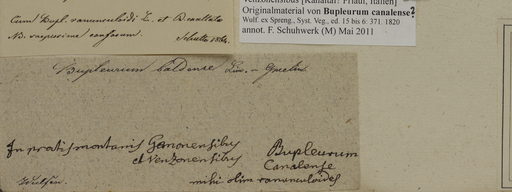 Cum Bupl. ranunculoidi L. et B. caudato
Venzonensibus [Kanaltal? Friaul, Italien]
Originalmaterial von Bupleurum canalense?
Wulf. ex Spreng., Syst. Veg., ed. 15 bis 6: 371. 1820
annot. F. Schuhwerk (M) Mai 2011
Bupleurum baldense
In pratis montanis Gemonensibus
et Venzonensibus
Bupleurum
Canalense
mihi olim ranunculoides
Wulfen.